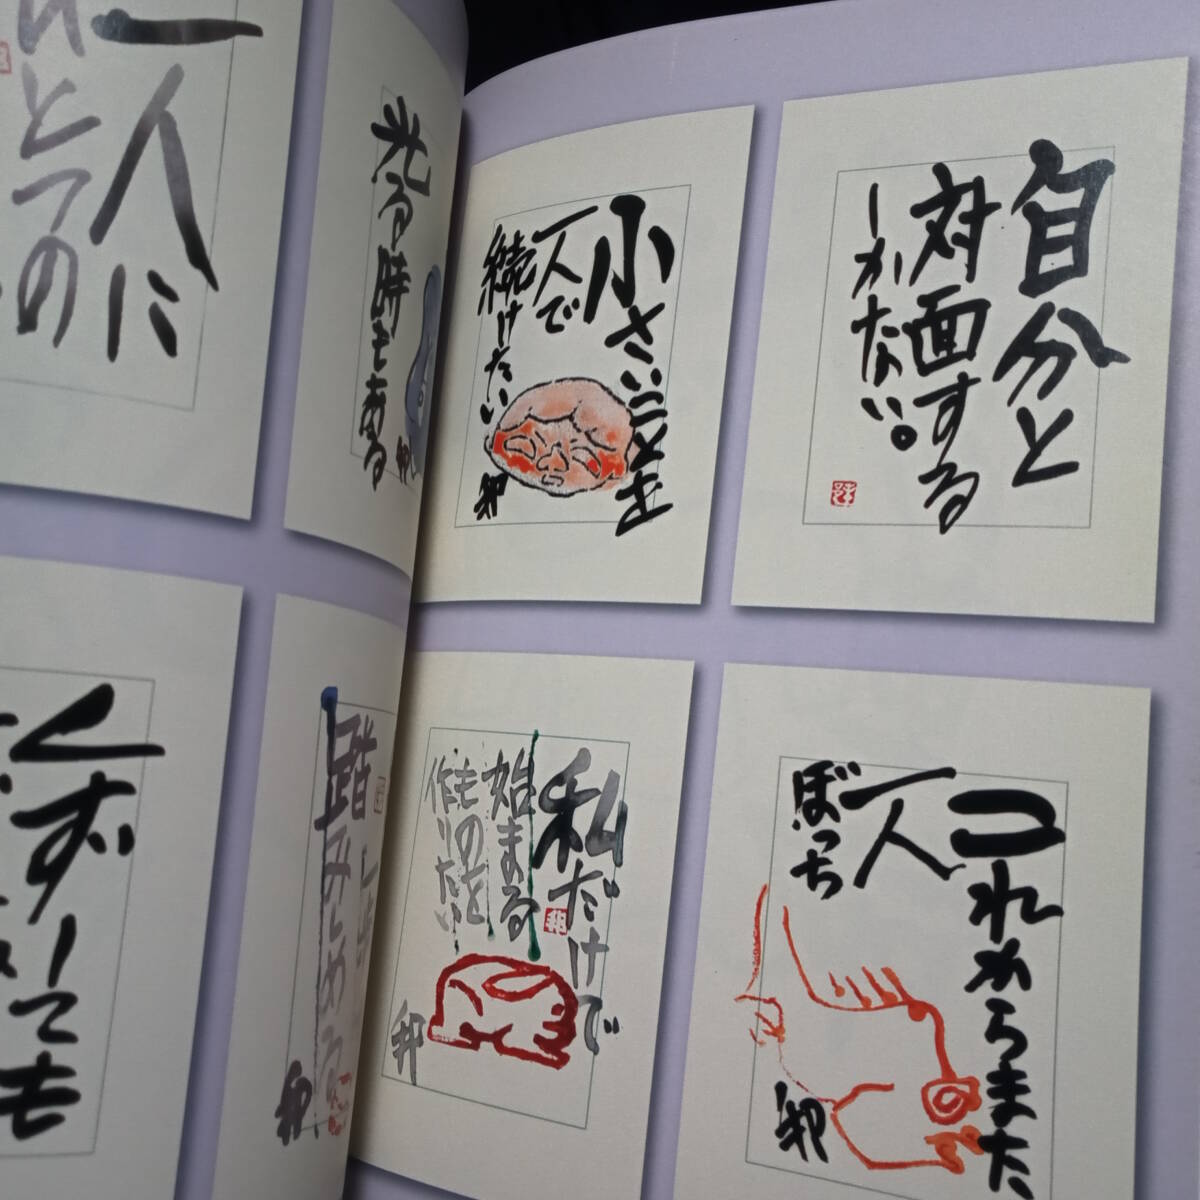 自分と
対面する
しかない。
小さいことを
一人で
続けたい
邦
これからまた
一人
ぼっち
邦
私だけで
始まる
ものを
作りたい
邦
光る時もある
邦
踏みとめる
邦
一人に
とっての
くずしても